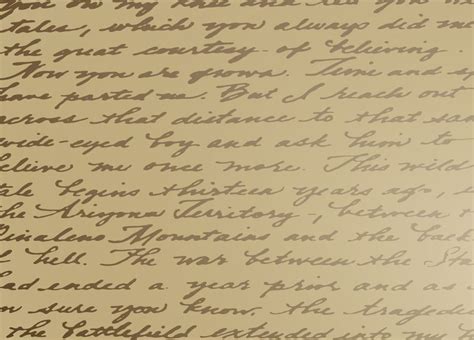 you on my knee and tell you
tales, which you always did me
the great courtesy of believing.
Now you are grown. Time and
have parted me. But I reach out
across that distance to that
wide-eyed boy and ask him to
believe me once more. This wild
tale begins thirteen years ago,
the Arizona Territory, between
Pinaleno Mountains and the back
of hell. The war between the Sta
had ended a year prior and as
sure you know, the tragedie
the battlefield extended into my